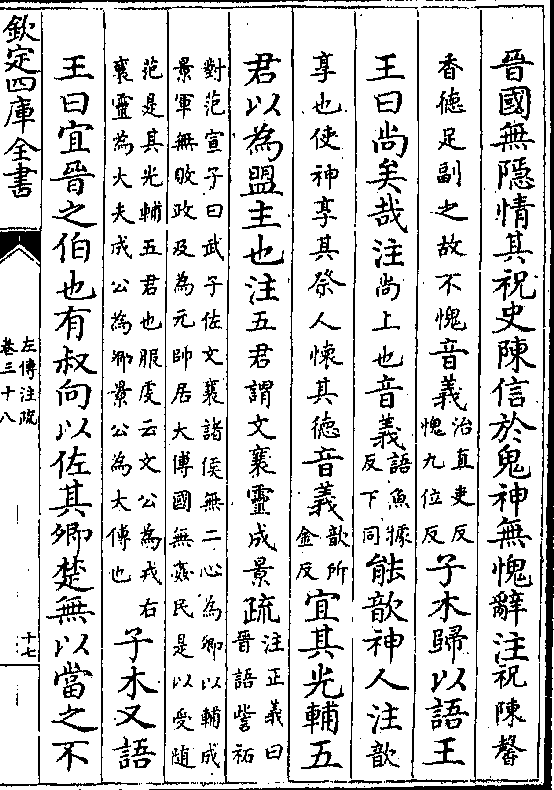 晉國無隱情其祝史陳信於鬼神無愧辭注祝陳馨
香德足副之故不愧音義治直吏反愧九位反子木歸以語王
王曰尚矣哉注尚上也音義語魚據反下同能歆神人注歆
享也使神享其祭人懷其德音義歆所金反宜其光輔五
君以為盟主也注五君謂文襄靈成景疏注正義曰晉語訾祏
對范宣子曰武子佐文襄諸侯無二心為卿以輔成
景軍無敗政及為元帥居大傅國無姦民是以受隨
范是其光輔五君也服虔云文公為戎右
襄靈為大夫成公為卿景公為大傅也子木又語
王曰宜晉之伯也有叔向以佐其卿楚無以當之不
欽定四庫全書
左傳注疏
卷三十八
十七